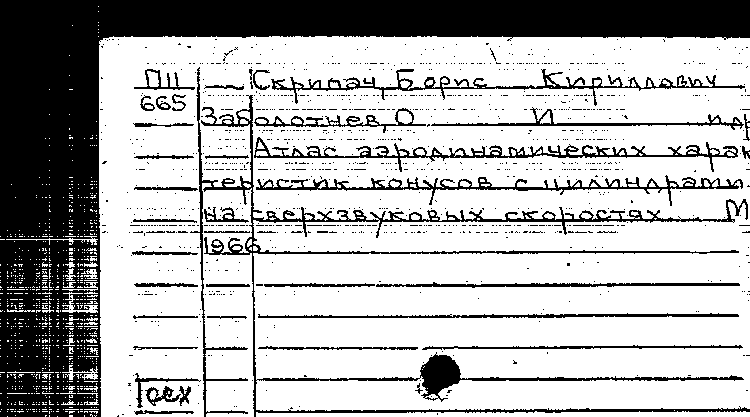 П11 Скрипач, Борис Кириллович
665
Заболотнев, О И и др
Атлас аэродинамических харак
теристик конусов с цилиндрами
на сверхзвуковых скоростях. М
1966.